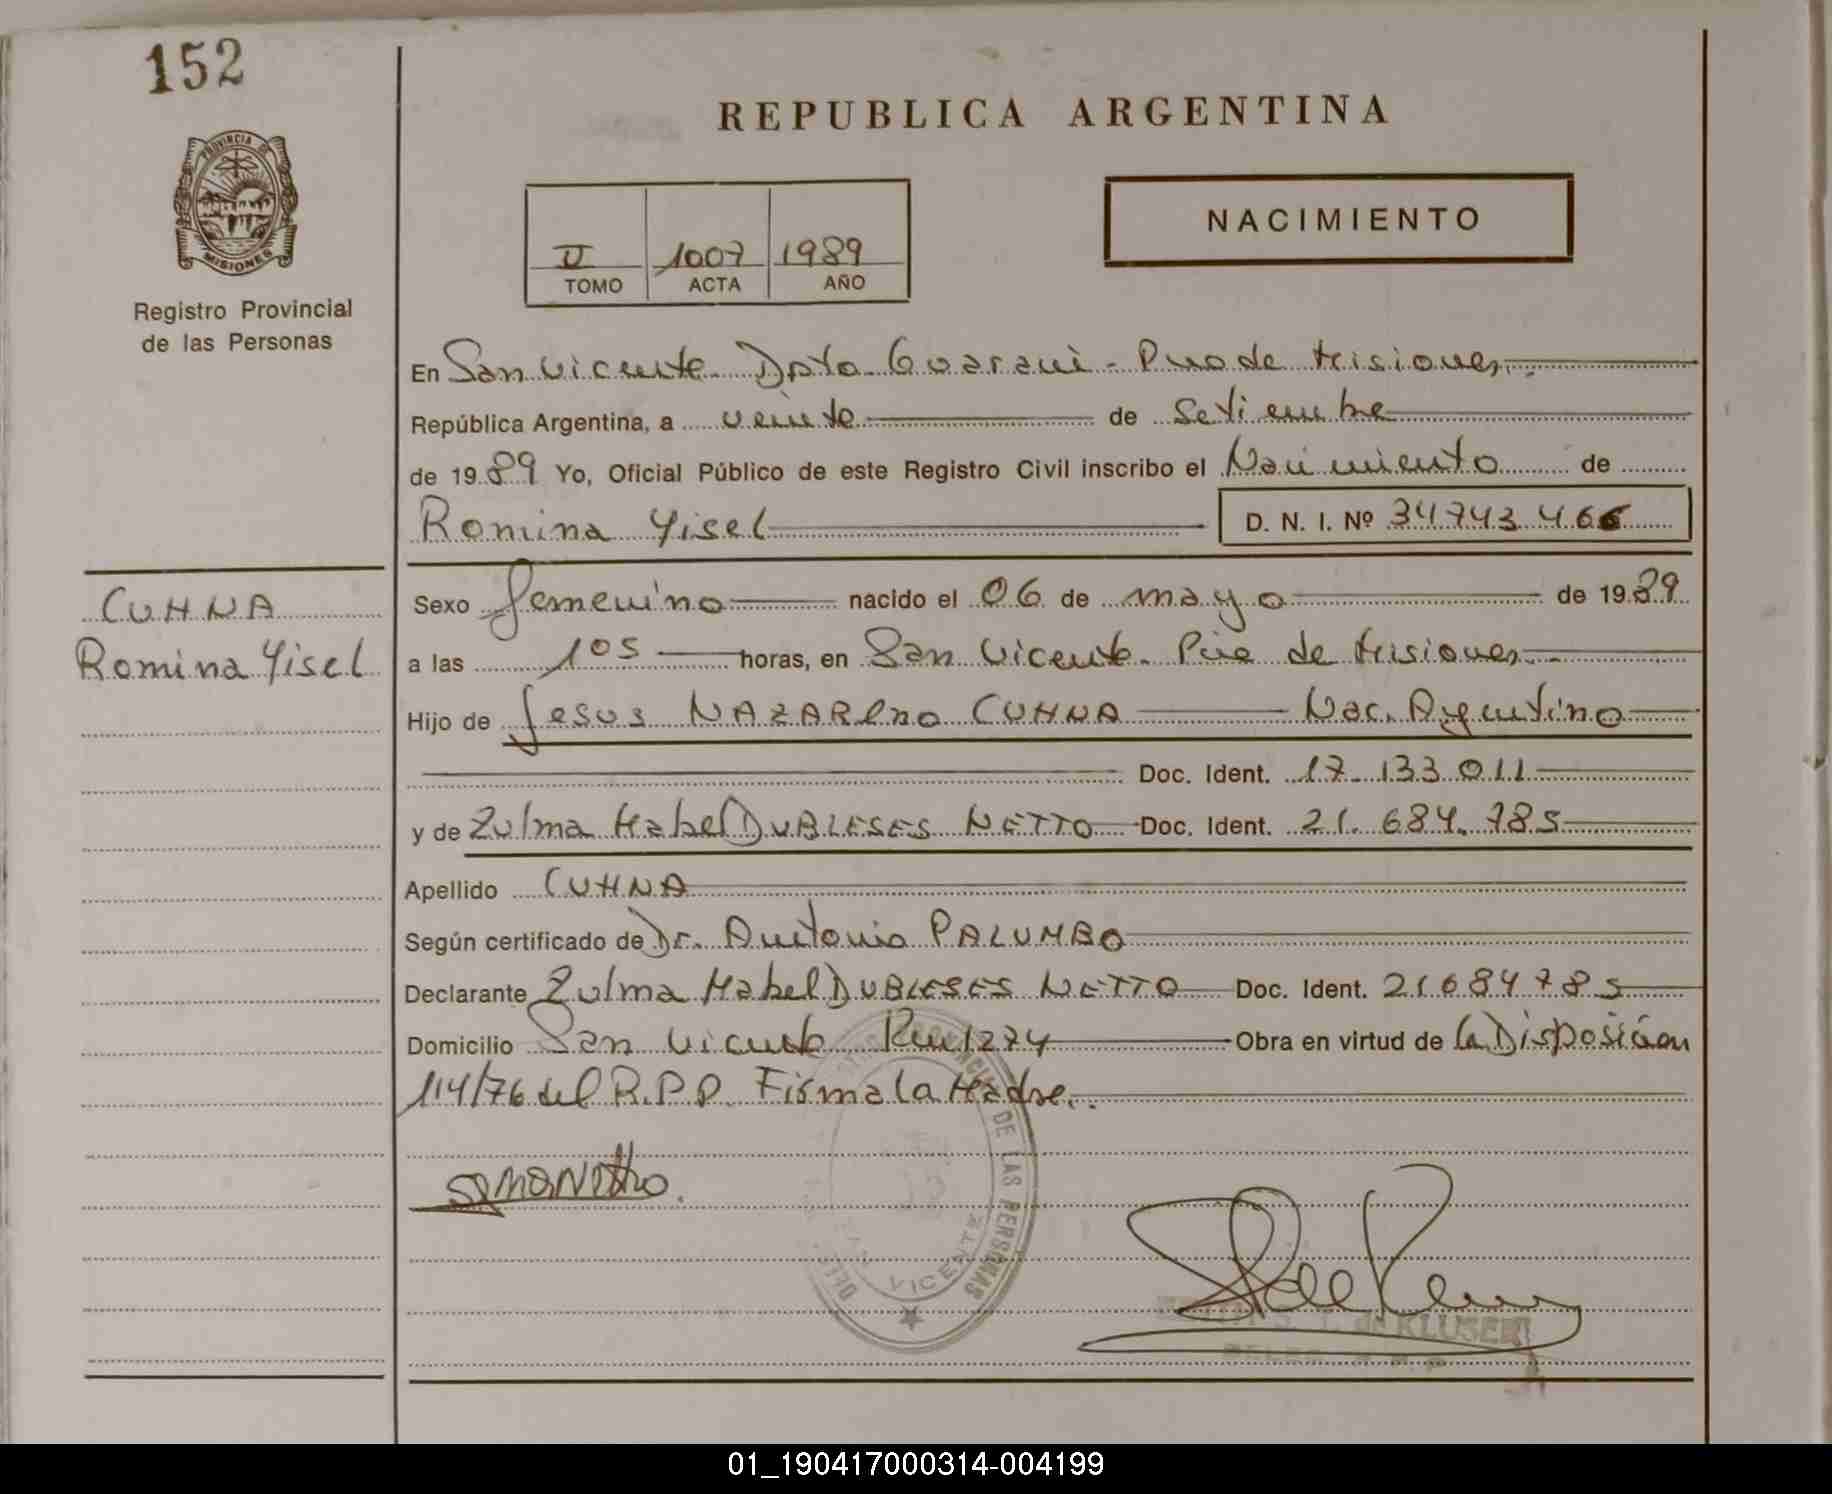 152
REPUBLICA ARGENTINA
PROVINCIA DE
MISIONES
NACIMIENTO
II 1007 1989
TOMO ACTA AÑO
Registro Provincial
de las Personas
En San Vicente Dpto Guarani - Pvo de Misiones.
República Argentina, a veinte de Setiembre
de 1989 Yo, Oficial Público de este Registro Civil inscribo el Nacimiento de
Romina Yisel D. N. I. Nº 34743466
CUHNA
Romina Yisel
Sexo femenino nacido el 06 de mayo de 1989
a las 105 horas, en San Vicente. Pcia de Misiones.
Hijo de Jesus NAZAREno CUHNA Nac. Argentino
Doc. Ident. 17.133.011
y de Zulma Mabel DUBLESES NETTO Doc. Ident. 21.684.785
Apellido CUHNA
Según certificado de Dr. Antonio PALUMBO
Declarante Zulma Mabel DUBLESES NETTO Doc. Ident. 21684785
Domicilio San Vicente Km 1274 Obra en virtud de la Disposición
114/76 del R.P.P. Firma la Madre.
DE LAS PERSONAS
VICENTE
DELEG
S. T. de KLUSER
01_190417000314-004199